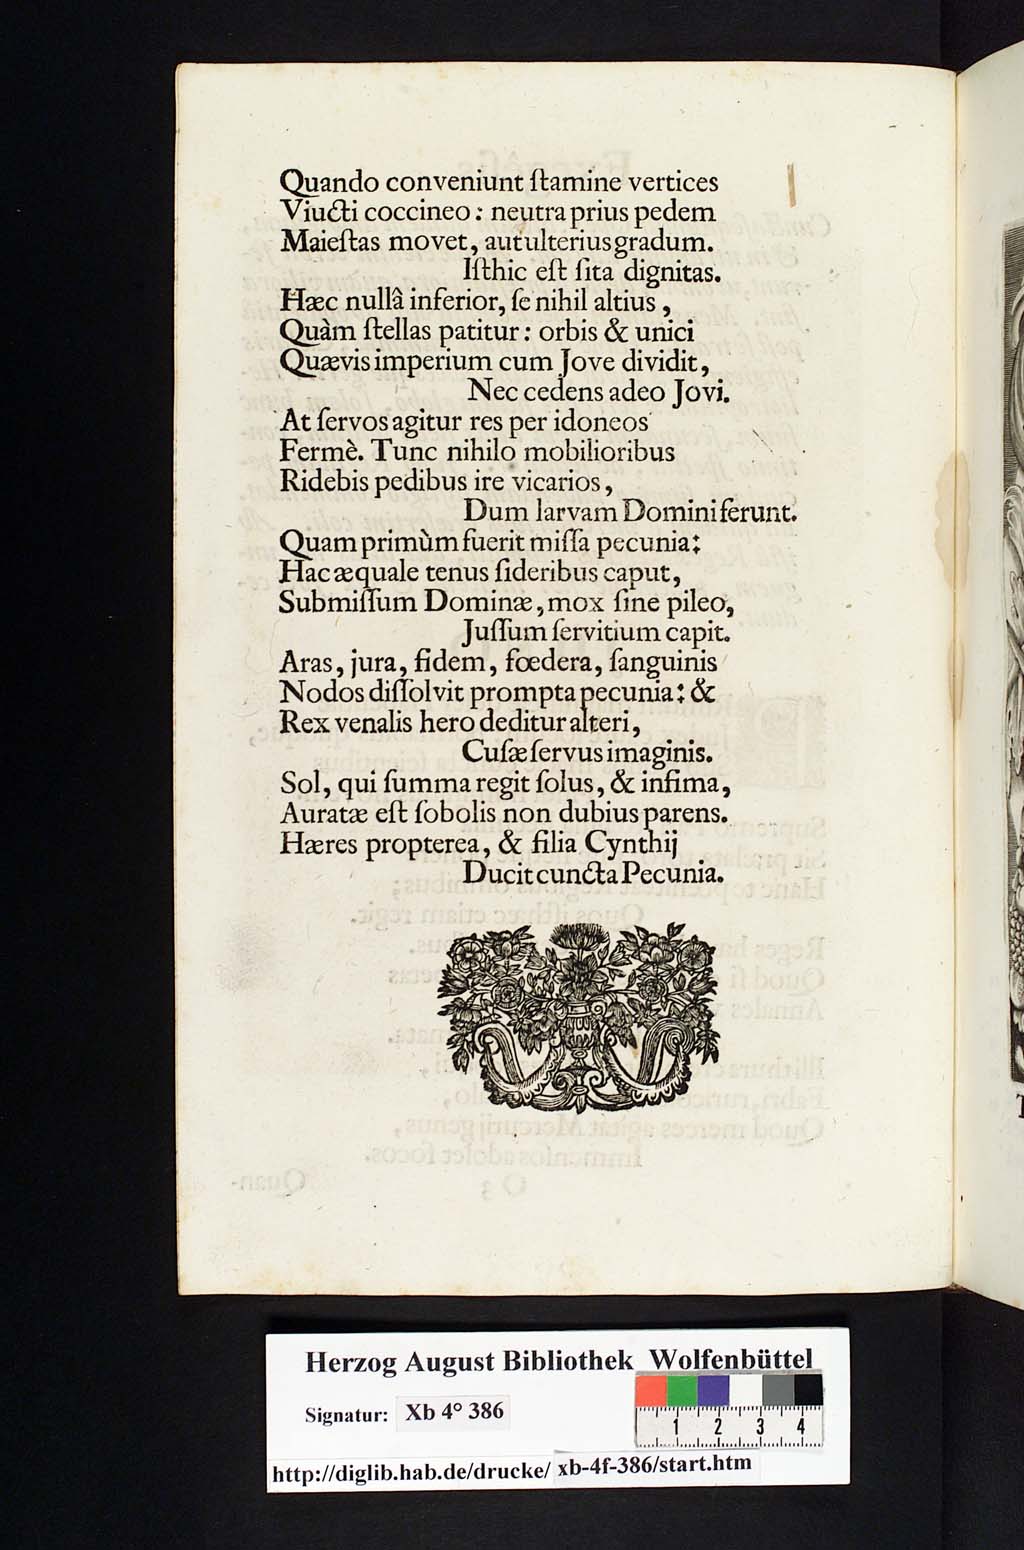 Quando conveniunt ſtamine vertices
Viucti coccineo: neutra prius pedem
Maieſtas movet, aut ulterius gradum.
Iſthic eſt ſita dignitas.
Hæc nullâ inferior, ſe nihil altius,
Quàm ſtellas patitur: orbis & unici
Quævis imperium cum Jove dividit,
Nec cedens adeo Jovi.
At ſervos agitur res per idoneos
Fermè. Tunc nihilo mobilioribus
Ridebis pedibus ire vicarios,
Dum larvam Domini ferunt.
Quam primùm fuerit miſſa pecunia:
Hac æquale tenus ſideribus caput,
Submiſſum Dominæ, mox ſine pileo,
Juſſum ſervitium capit.
Aras, jura, fidem, fœdera, ſanguinis
Nodos diſſolvit prompta pecunia: &
Rex venalis hero deditur alteri,
Cuſæ ſervus imaginis.
Sol, qui ſumma regit ſolus, & infima,
Auratæ eſt ſobolis non dubius parens.
Hæres propterea, & filia Cynthij
Ducit cuncta Pecunia.
Herzog August Bibliothek Wolfenbüttel
Signatur: Xb 4° 386
1 2 3 4
http://diglib.hab.de/drucke/ xb-4f-386/start.htm